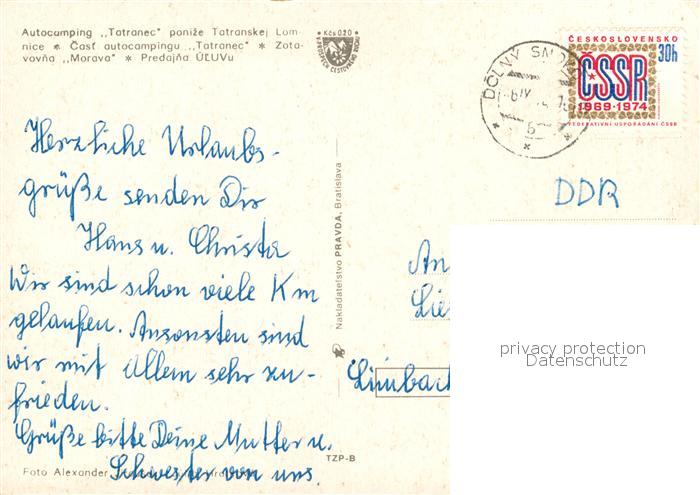 Autocamping ,,Tatranec" poniže Tatranskej Lom-
nice * Časť autocampingu ,,Tatranec" * Zota-
vovňa ,,Morava" * Predajňa ÚĽUVu
Kčs 0,20
ČESKOSLOVENSKO
30h
ČSSR
1969-1974
FEDERATIVNÍ USPOŘÁDÁNÍ ČSSR
DOLNÝ
6
Herzliche Urlaubs-
grüße senden Dir
Hans u. Christa
Wir sind schon viele Km
gelaufen. Ansonsten sind
wir mit Allem sehr zu-
frieden.
Grüße bitte Deine Mutter u.
Schwester von uns.
Foto Alexander
TZP-B
Nakladateľstvo PRAVDA, Bratislava
DDR
An
Limbach
privacy protection
Datenschutz